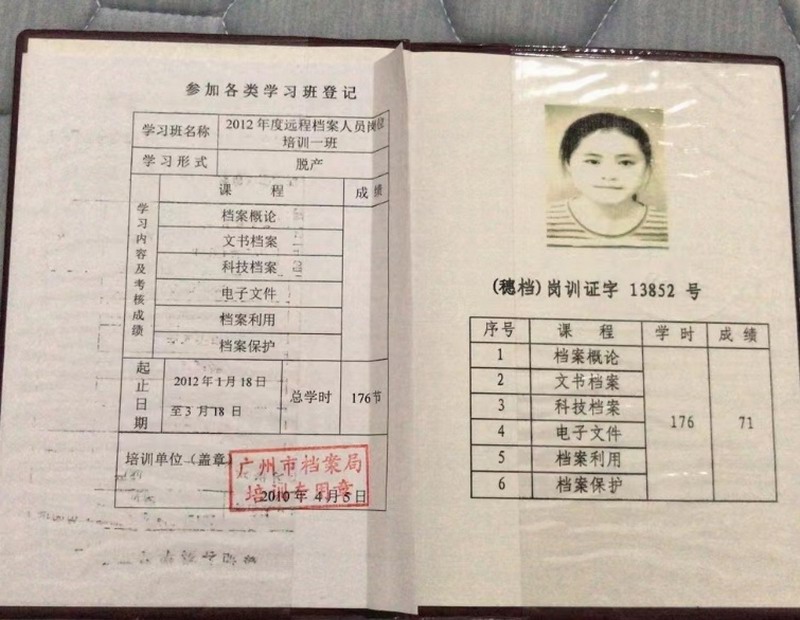 参加各类学习班登记
学习班名称
2012 年度远程档案人员岗位
培训一班
学习形式
脱产
学习内容及考核成绩
课 程
成 绩
档案概论
文书档案
科技档案
电子文件
档案利用
档案保护
起止日期
2012 年 1 月 18 日
至 3 月 18 日
总学时
176节
培训单位（盖章
广州市档案局
培训专用章
2010 年 4 月 5 日
(穗档)岗训证字 13852 号
序号 课 程 学 时 成 绩
1 档案概论
2 文书档案
3 科技档案
176 71
4 电子文件
5 档案利用
6 档案保护